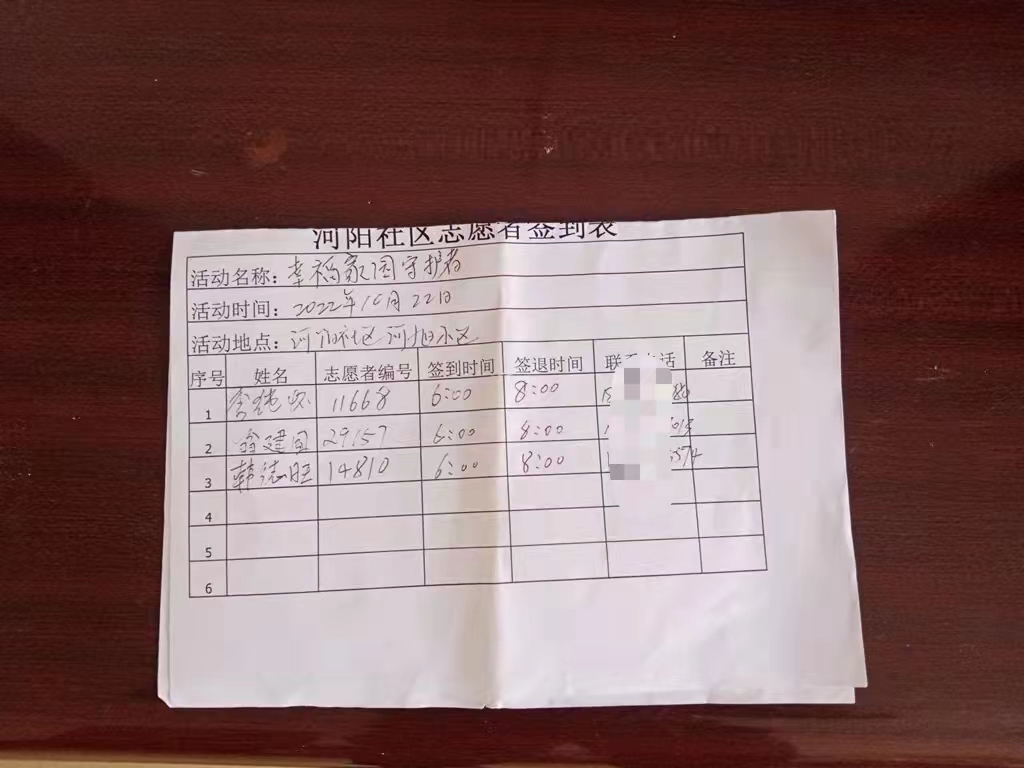 河阳社区志愿者签到表
活动名称：幸福家园守护者
活动时间：2022年10月22日
活动地点：河阳社区河旭小区
序号 姓名 志愿者编号 签到时间 签退时间 联系电话 备注
1 李 11668 6:00 8:00
2 翁建国 29157 6:00 8:00
3 韩德旺 14810 6:00 8:00
4
5
6